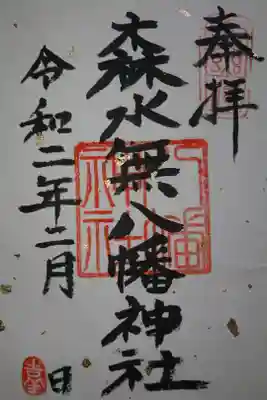 奉拝
森水無八幡神社
令和二年二月 日